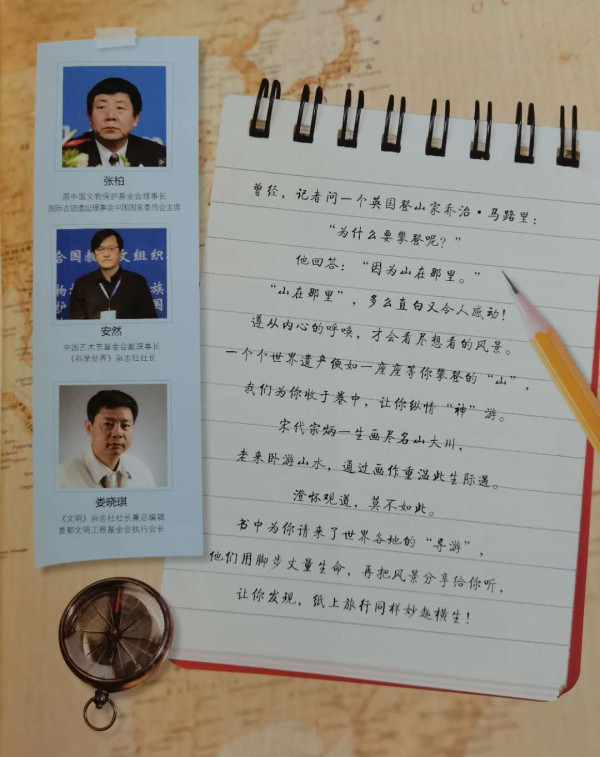 张柏
原中国文物保护基金会理事长
国际古迹遗址理事会中国国家委员会主席
合国教 文组织
安然
中国艺术节基金会副理事长
《科学世界》杂志社社长
娄晓琪
《文明》杂志社社长兼总编辑
首都文明工程基金会执行会长
曾经，记者问一个英国登山家乔治·马路里：
“为什么要攀登呢？”
他回答：“因为山在那里。”
“山在那里”，多么直白又令人感动！
遵从内心的呼唤，才会看尽想看的风景。
一个个世界遗产便如一座座等你攀登的“山”，
我们为你收于卷中，让你纵情“神”游。
宋代宗炳一生画尽名山大川，
老来卧游山水，通过画作重温此生际遇。
澄怀观道，莫不如此。
书中为你请来了世界各地的“导游”，
他们用脚步丈量生命，再把风景分享给你听，
让你发现，纸上旅行同样妙趣横生！